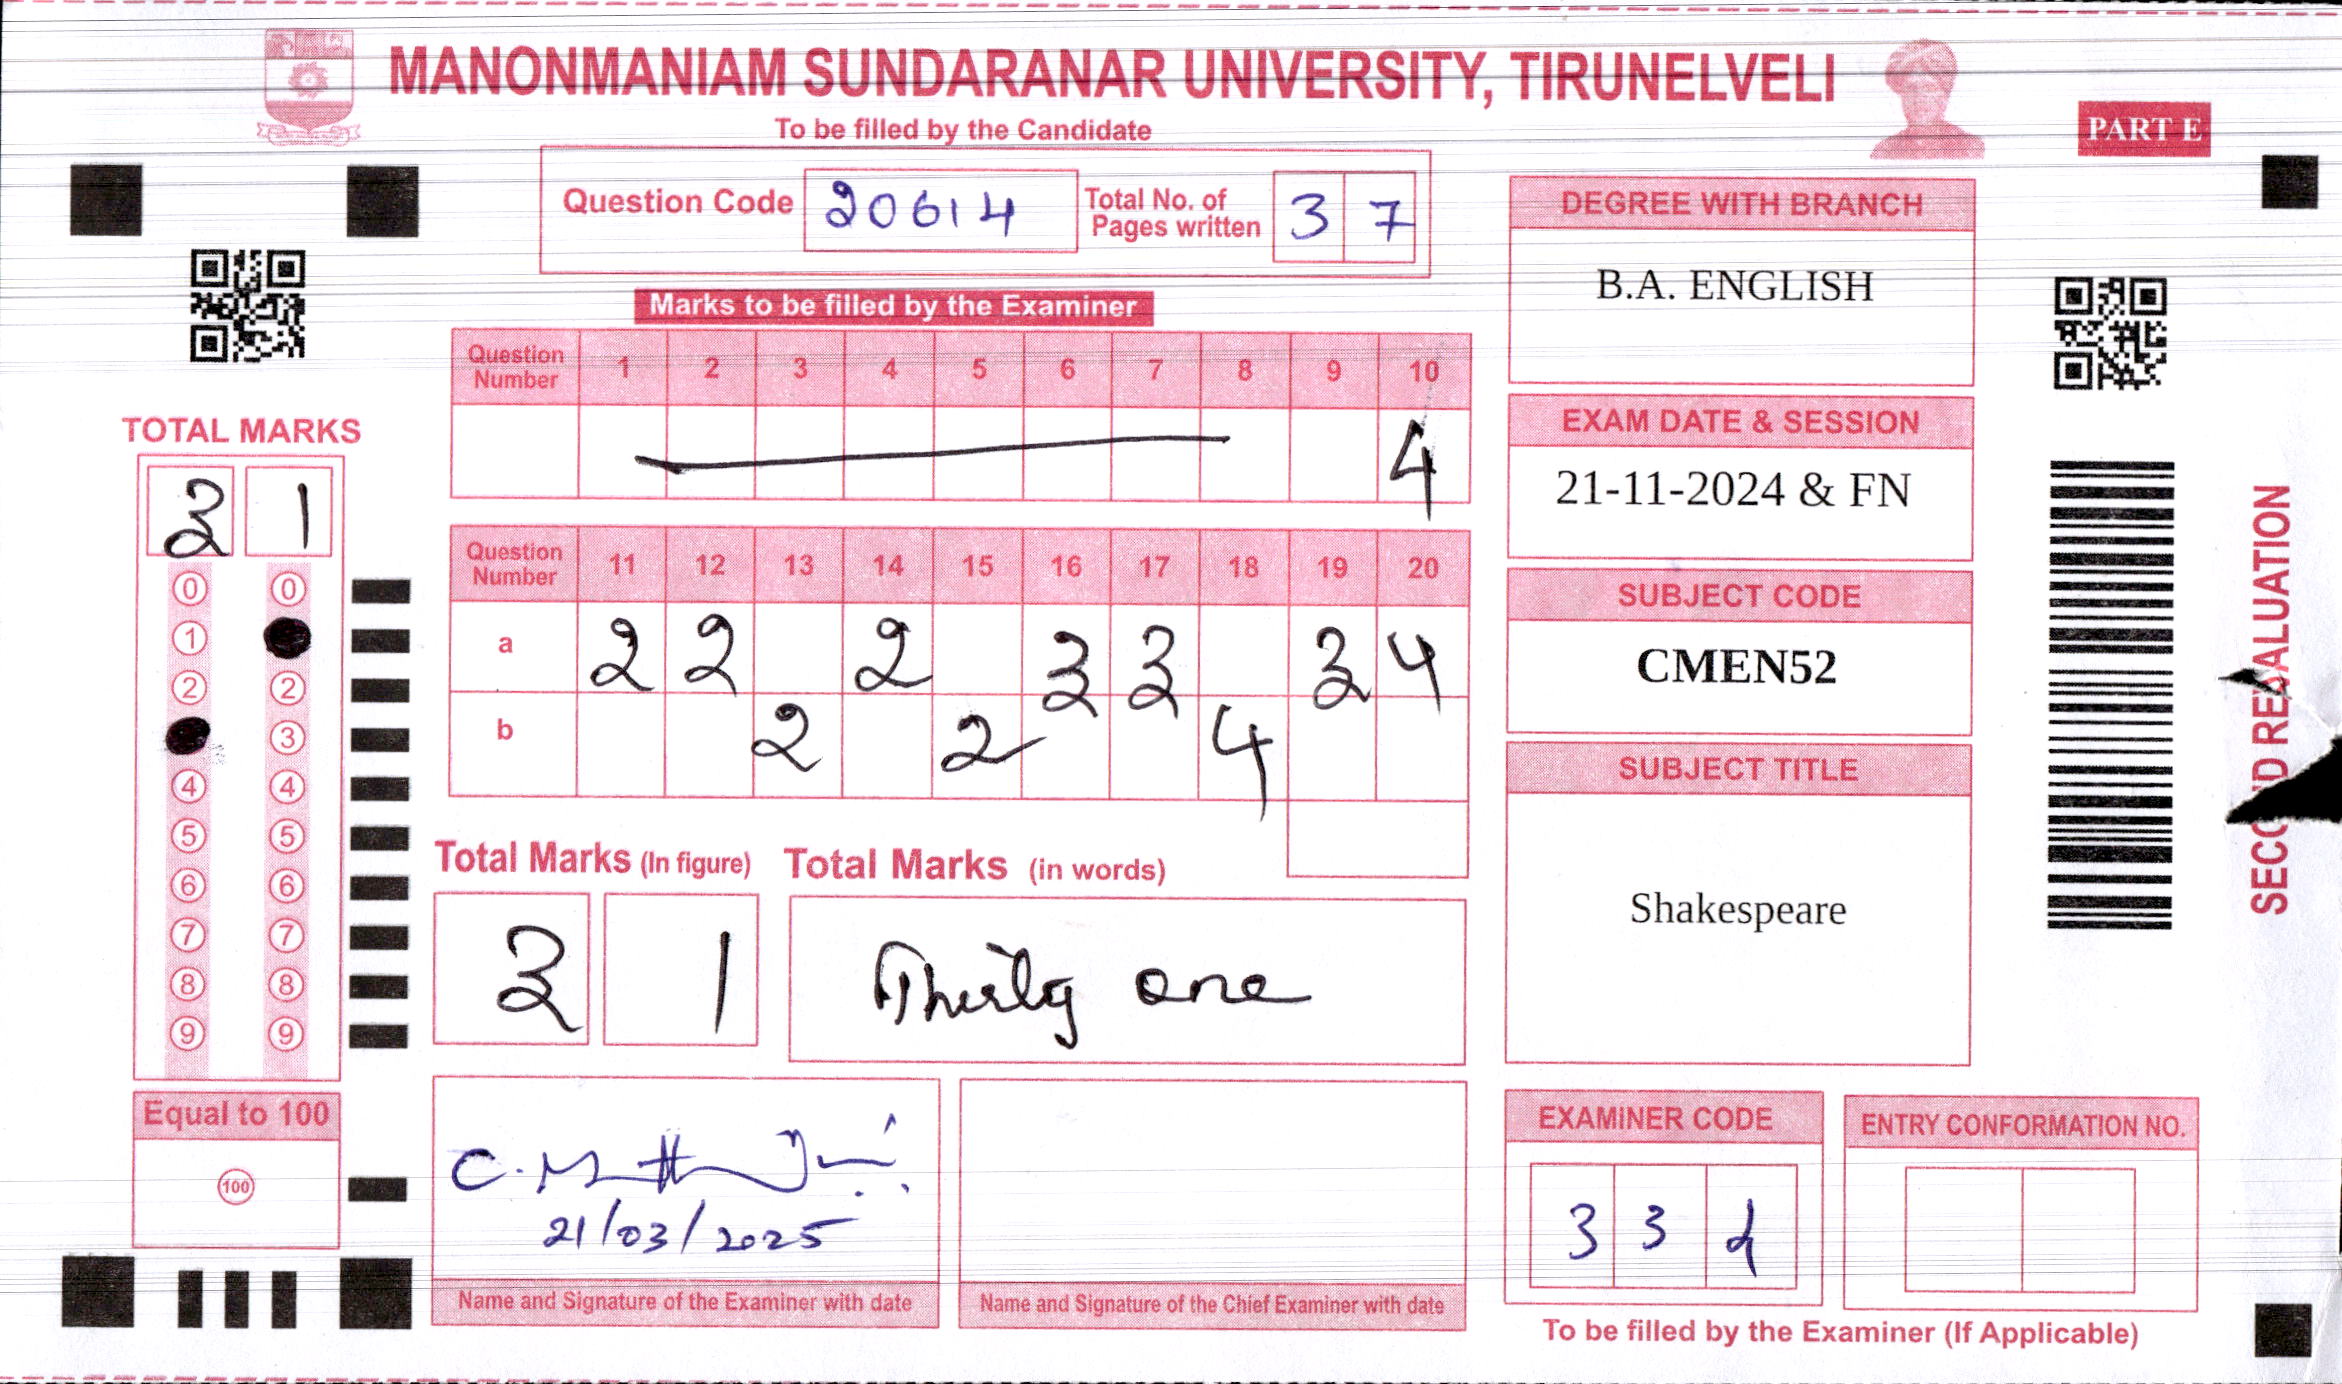 MANONMANIAM SUNDARANAR UNIVERSITY, TIRUNELVELI
To be filled by the Candidate
PART E
Question Code 20614 Total No. of Pages written 3 7
Marks to be filled by the Examiner
Question Number 1 2 3 4 5 6 7 8 9 10
4
Question Number 11 12 13 14 15 16 17 18 19 20
a 2 2 2 3 3 3 4
b 2 2 4
TOTAL MARKS
3 1
0 0
1
2 2
3
4 4
5 5
6 6
7 7
8 8
9 9
Equal to 100
100
Total Marks (In figure) Total Marks (in words)
3 1 Thirty one
21/03/2025
Name and Signature of the Examiner with date
Name and Signature of the Chief Examiner with date
DEGREE WITH BRANCH
B.A. ENGLISH
EXAM DATE & SESSION
21-11-2024 & FN
SUBJECT CODE
CMEN52
SUBJECT TITLE
Shakespeare
EXAMINER CODE
3 3
ENTRY CONFORMATION NO.
To be filled by the Examiner (If Applicable)